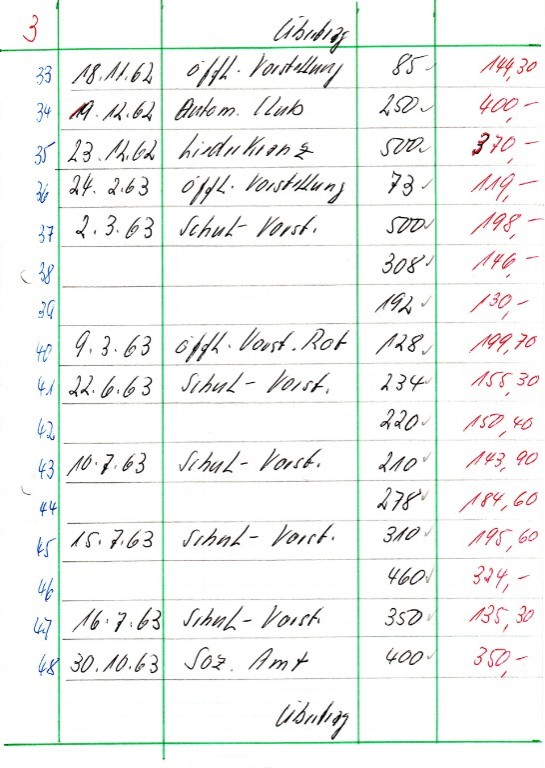 3 Übertrag
33 18.11.62 öffl. Vorstellung 85 144,30
34 19.12.62 Autom. Club 250 400,-
35 23.12.62 Liederkranz 500 370,-
36 24.2.63 öffl. Vorstellung 73 119,-
37 2.3.63 Schul-Vorst. 500 198,-
38 308 146,-
39 192 130,-
40 9.3.63 öffl. Vorst. Rot 128 199,70
41 22.6.63 Schul-Vorst. 234 155,30
42 220 150,40
43 10.7.63 Schul-Vorst. 210 143,90
44 278 184,60
45 15.7.63 Schul-Vorst. 310 195,60
46 460 324,-
47 16.7.63 Schul-Vorst. 350 135,30
48 30.10.63 Soz. Amt 400 350,-
Übertrag